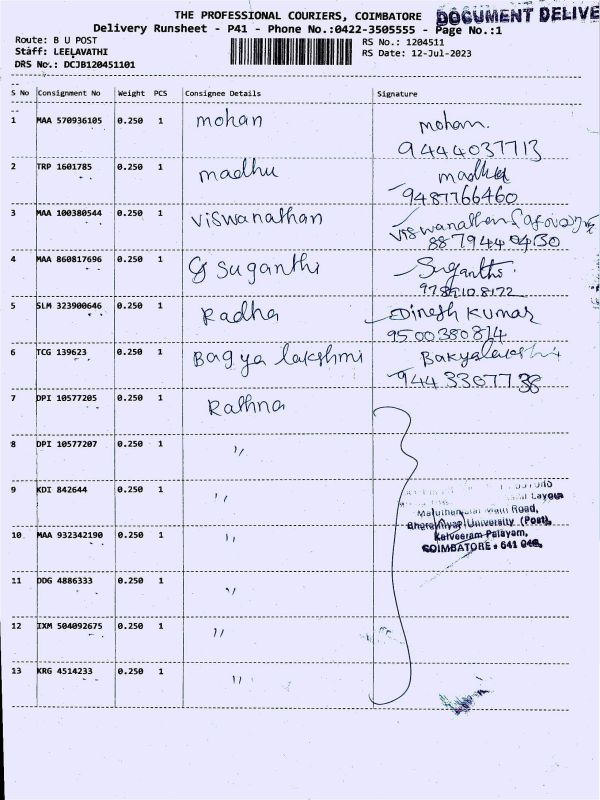 THE PROFESSIONAL COURIERS, COIMBATORE
DOCUMENT DELIVE
Delivery Runsheet - P41 - Phone No.:0422-3505555 - Page No.:1
Route: B U POST
RS No.: 1204511
Staff: LEELAVATHI
RS Date: 12-Jul-2023
DRS No.: DCJB120451101
S No Consignment No Weight PCS Consignee Details Signature
1 MAA 570936105 0.250 1 mohan mohan.
9444037713
2 TRP 1601785 0.250 1 madhu madhu
9487766460
3 MAA 100380544 0.250 1 viswanathan Viswanathan
8879444 0430
4 MAA 860817696 0.250 1 Suganthi Suganthi.
5 SLM 323900646 0.250 1 Radha Dinesh Kumar
9500380814
6 TCG 139623 0.250 1 Bagya lakshmi Bakyalakshmi
944 33077 38
7 DPI 10577205 0.250 1 Rathna
8 DPI 10577207 0.250 1 "
9 KDI 842644 0.250 1 "
Layout
Main Road,
Bharathiyar University (Post),
Kalveeram Palayam,
COIMBATORE - 641 046.
10 MAA 932342190 0.250 1 "
11 DDG 4886333 0.250 1 "
12 IXM 504092675 0.250 1 "
13 KRG 4514233 0.250 1 "